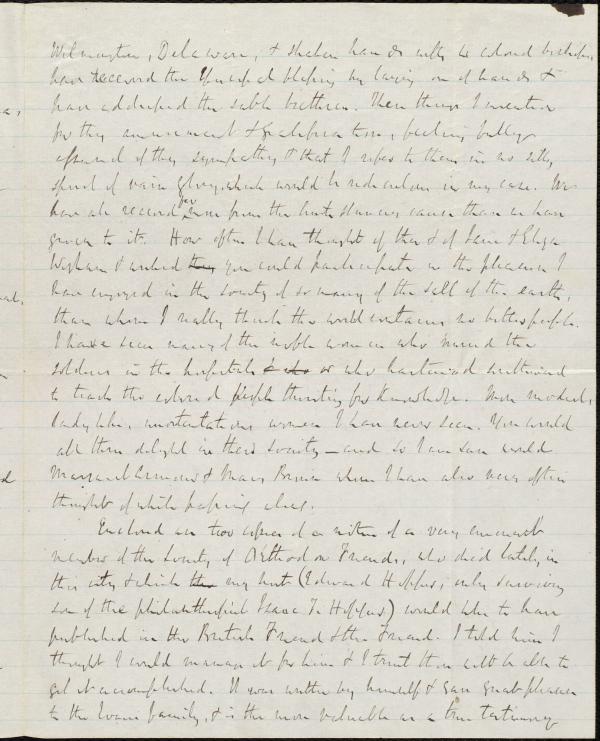 Wilmington, Delaware, & shaken hands with 42 colored bishops,
have received the Episcopal blessing by laying on of hands &
have addressed the sable brethren. These things I mention
for thy amusement & gratification, feeling fully
assured of thy sympathy & that I refer to them in no silly
spirit of vain glory, which would be ridiculous in my case. We
have all received far more from the anti slavery cause than we have
given to it. How often I have thought of thee & of Jane & Eliza
Wigham & wished they you could participate in the pleasure I
have enjoyed in the society of so many of the salt of the earth,
than whom I really think the world contains no better people.
I have seen many of the noble women who nursed the
soldiers in the hospitals & who or who hastened southward
to teach the colored people thirsting for knowledge. More modest,
ladylike, unostentatious women I have never seen. You would
all them delight in their society — and so I am sure would
Margaret & Mary when I have also very often
thought of while passing along.
Enclosed are two copies of a notice of a very eminent
member of the Society of Orthodox Friends, who died lately in
this city & which the my host (Edward Hopper, only surviving
son of the philanthropist Isaac T. Hopper) would like to have
published in the British Friend & the Friend. I told him I
thought I could manage it for him & I trust thou wilt be able to
get it accomplished. It was written by himself & gave great pleasure
to the Evans family, & is the more valuable as a true testimony